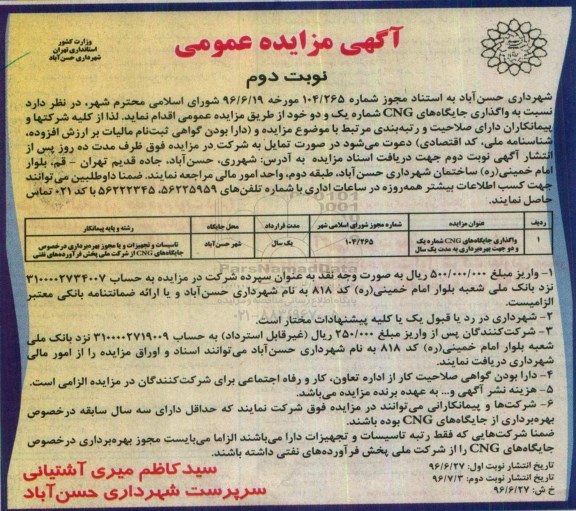 وزارت کشور
استانداری تهران
شهرداری حسن‌آباد
آگهی مزایده عمومی
نوبت دوم
شهرداری حسن‌آباد به استناد مجوز شماره ۱۰۴/۲۶۵ مورخه ۹۶/۶/۱۹ شورای اسلامی محترم شهر، در نظر دارد
نسبت به واگذاری جایگاه‌های CNG شماره یک و دو خود از طریق مزایده عمومی اقدام نماید. لذا از کلیه شرکتها و
پیمانکاران دارای صلاحیت و رتبه‌بندی مرتبط با موضوع مزایده و (دارا بودن گواهی ثبت‌نام مالیات بر ارزش افزوده،
شناسنامه ملی، کد اقتصادی) دعوت می‌شود در صورت تمایل به شرکت در مزایده فوق ظرف مدت ده روز پس از
انتشار آگهی نوبت دوم جهت دریافت اسناد مزایده به آدرس: شهرری، حسن‌آباد، جاده قدیم تهران - قم، بلوار
امام خمینی(ره) ساختمان شهرداری حسن‌آباد، طبقه دوم، واحد امور مالی مراجعه نمایند. ضمنا داوطلبین می‌توانند
جهت کسب اطلاعات بیشتر همه‌روزه در ساعات اداری با شماره تلفن‌های ۵۶۲۲۵۹۵۹، ۵۶۲۲۲۳۴۵ با کد ۰۲۱ تماس
حاصل نمایند.
ردیف عنوان مزایده شماره مجوز شورای اسلامی شهر مدت قرارداد محل جایگاه رشته و پایه پیمانکار
۱ واگذاری جایگاه‌های CNG شماره یک ۱۰۴/۲۶۵ یک سال شهر حسن‌آباد تاسیسات و تجهیزات و یا مجوز بهره‌برداری درخصوص
و دو جهت بهره‌برداری به مدت یک سال جایگاه‌های CNG از شرکت ملی پخش فرآورده‌های نفتی
۱- واریز مبلغ ۵۰۰/۰۰۰/۰۰۰ ریال به صورت وجه نقد به عنوان سپرده شرکت در مزایده به حساب ۳۱۰۰۰۰۲۷۳۴۰۰۷
نزد بانک ملی شعبه بلوار امام خمینی(ره) کد ۸۱۸ به نام شهرداری حسن‌آباد و یا ارائه ضمانتنامه بانکی معتبر
الزامیست.
۲- شهرداری در رد یا قبول یک یا کلیه پیشنهادات مختار است.
۳- شرکت‌کنندگان پس از واریز مبلغ ۲۵۰/۰۰۰ ریال (غیرقابل استرداد) به حساب ۳۱۰۰۰۰۲۷۱۹۰۰۹ نزد بانک ملی
شعبه بلوار امام خمینی(ره) کد ۸۱۸ به نام شهرداری حسن‌آباد می‌توانند اسناد و اوراق مزایده را از امور مالی
شهرداری دریافت نمایند.
۴- دارا بودن گواهی صلاحیت کار از اداره تعاون، کار و رفاه اجتماعی برای شرکت‌کنندگان در مزایده الزامی است.
۵- هزینه نشر آگهی و... به عهده برنده مزایده می‌باشد.
۶- شرکت‌ها و پیمانکارانی می‌توانند در مزایده فوق شرکت نمایند که حداقل دارای سه سال سابقه درخصوص
بهره‌برداری از جایگاه‌های CNG بوده باشند.
ضمنا شرکت‌هایی که فقط رتبه تاسیسات و تجهیزات دارا می‌باشند الزاما می‌بایست مجوز بهره‌برداری درخصوص
جایگاه‌های CNG را از شرکت ملی پخش فرآورده‌های نفتی داشته باشند.
تاریخ انتشار نوبت اول: ۹۶/۶/۲۷
تاریخ انتشار نوبت دوم: ۹۶/۷/۳
خ ش: ۹۶/۶/۲۷
سید کاظم میری آشتیانی
سرپرست شهرداری حسن‌آباد